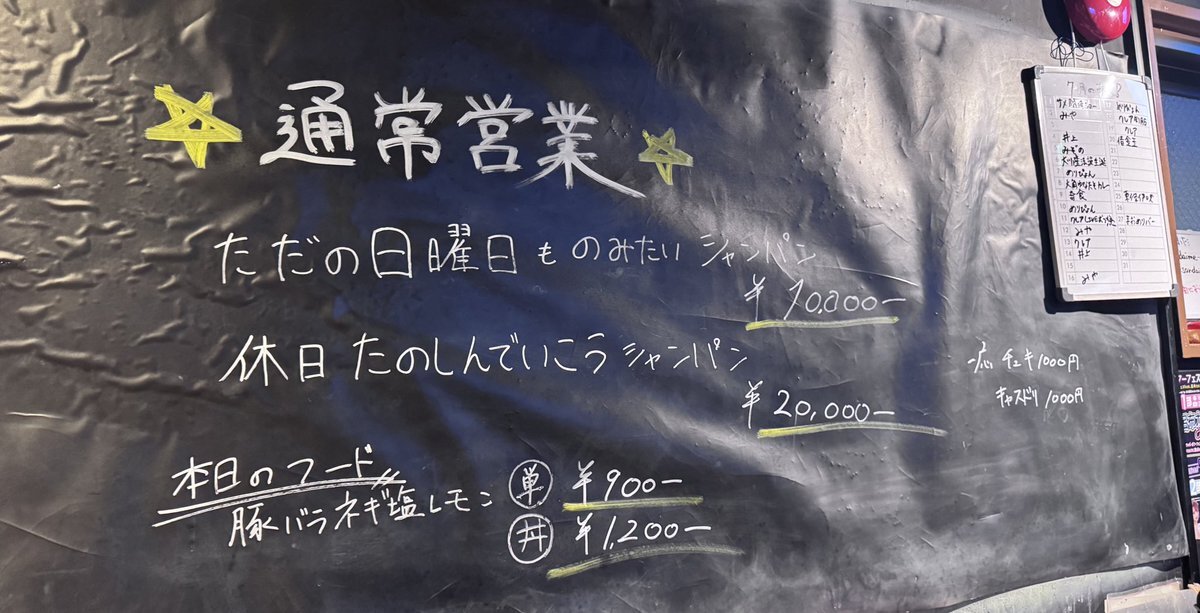 通常営業
ただの日曜日ものみたいシャンパン
¥10,000-
休日たのしんでいこうシャンパン
¥20,000-
チェキ1000円
キャスドリ1000円
本日のフード
豚バラネギ塩レモン
単 ¥900-
丼 ¥1,200-
みや
井上
みぞの
のりぴょん
音食
のりぴょん
みや
クレア
井上
みや
クレア
借金王